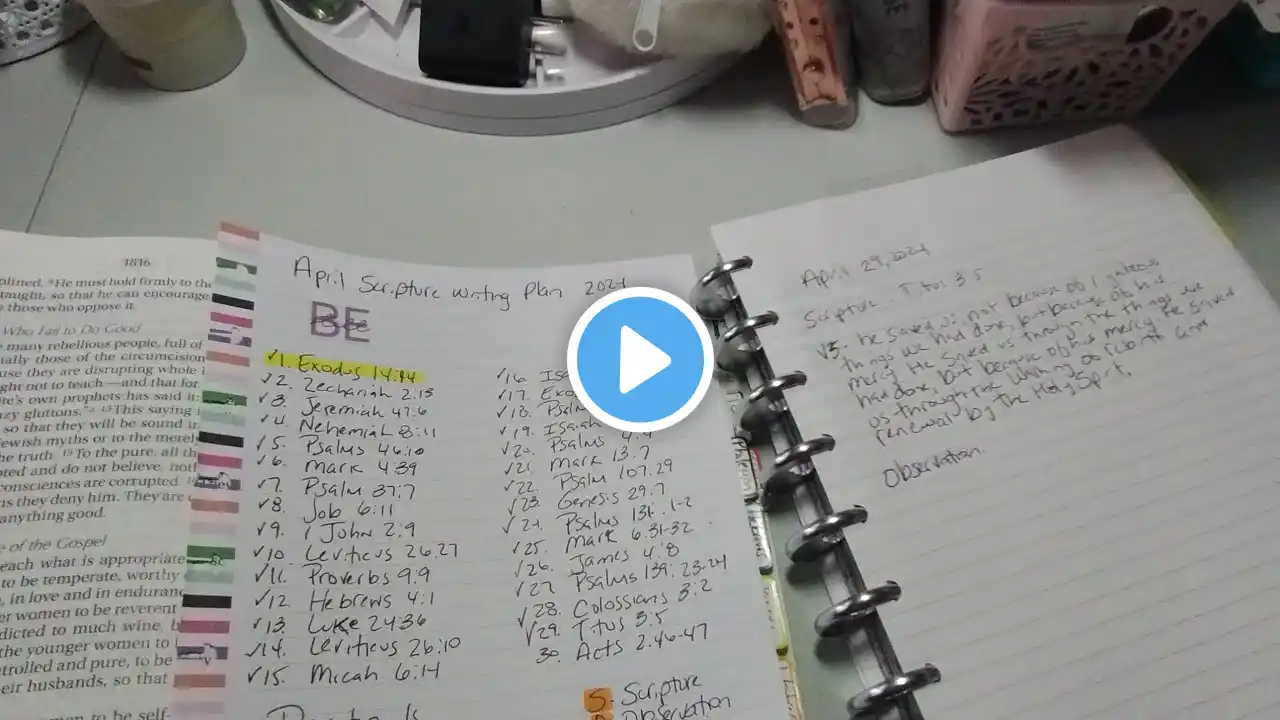 1816
plined. ⁹He must hold firmly to the
taught, so that he can encourage
those who oppose it.
Who Fail to Do Good
many rebellious people, full of
ially those of the circumcision
use they are disrupting whole
ght not to teach—and that for
te's own prophets has said it:
zy gluttons."ᵃ ¹³This saying
so that they will be sound in
ewish myths or to the merely
he truth. ¹⁵To the pure, all th
pted and do not believe, noth
consciences are corrupted. ¹⁶
ns they deny him. They are
anything good.
e of the Gospel
each what is appropriate
to be temperate, worthy
, in love and in enduranc
er women to be reverent
dicted to much wine, b
the younger women to
ntrolled and pure, to be
eir husbands, so that
to be self-
April Scripture Writing Plan 2024
BE
✓1. Exodus 14:14
✓2. Zechariah 2:13
✓3. Jeremiah 47:6
✓4. Nehemiah 8:11
✓5. Psalms 46:10
✓6. Mark 4:39
✓7. Psalm 37:7
✓8. Job 6:11
✓9. 1 John 2:9
✓10. Leviticus 26:27
✓11. Proverbs 9:9
✓12. Hebrews 4:1
✓13. Luke 24:36
✓14. Leviticus 26:10
✓15. Micah 6:14
✓16. Isa
✓17. Exo
✓18. Psalm
✓19. Isaiah
✓20. Psalms 4:4
✓21. Mark 13:7
✓22. Psalm 107:29
✓23. Genesis 29:7
✓24. Psalms 131:1-2
✓25. Mark 6:31-32
✓26. James 4:8
✓27. Psalms 139:23-24
✓28. Colossians 3:2
✓29. Titus 3:5
30. Acts 2:46-47
S. Scripture
Observation
April 29, 2024
Scripture: Titus 3:5
V5. he saved us, not because of righteous
things we had done, but because of his
mercy. He saved us through the things we
had done, but because of his mercy. He saved
us through the washing of rebirth and
renewal by the Holy Spirit,
Observation: